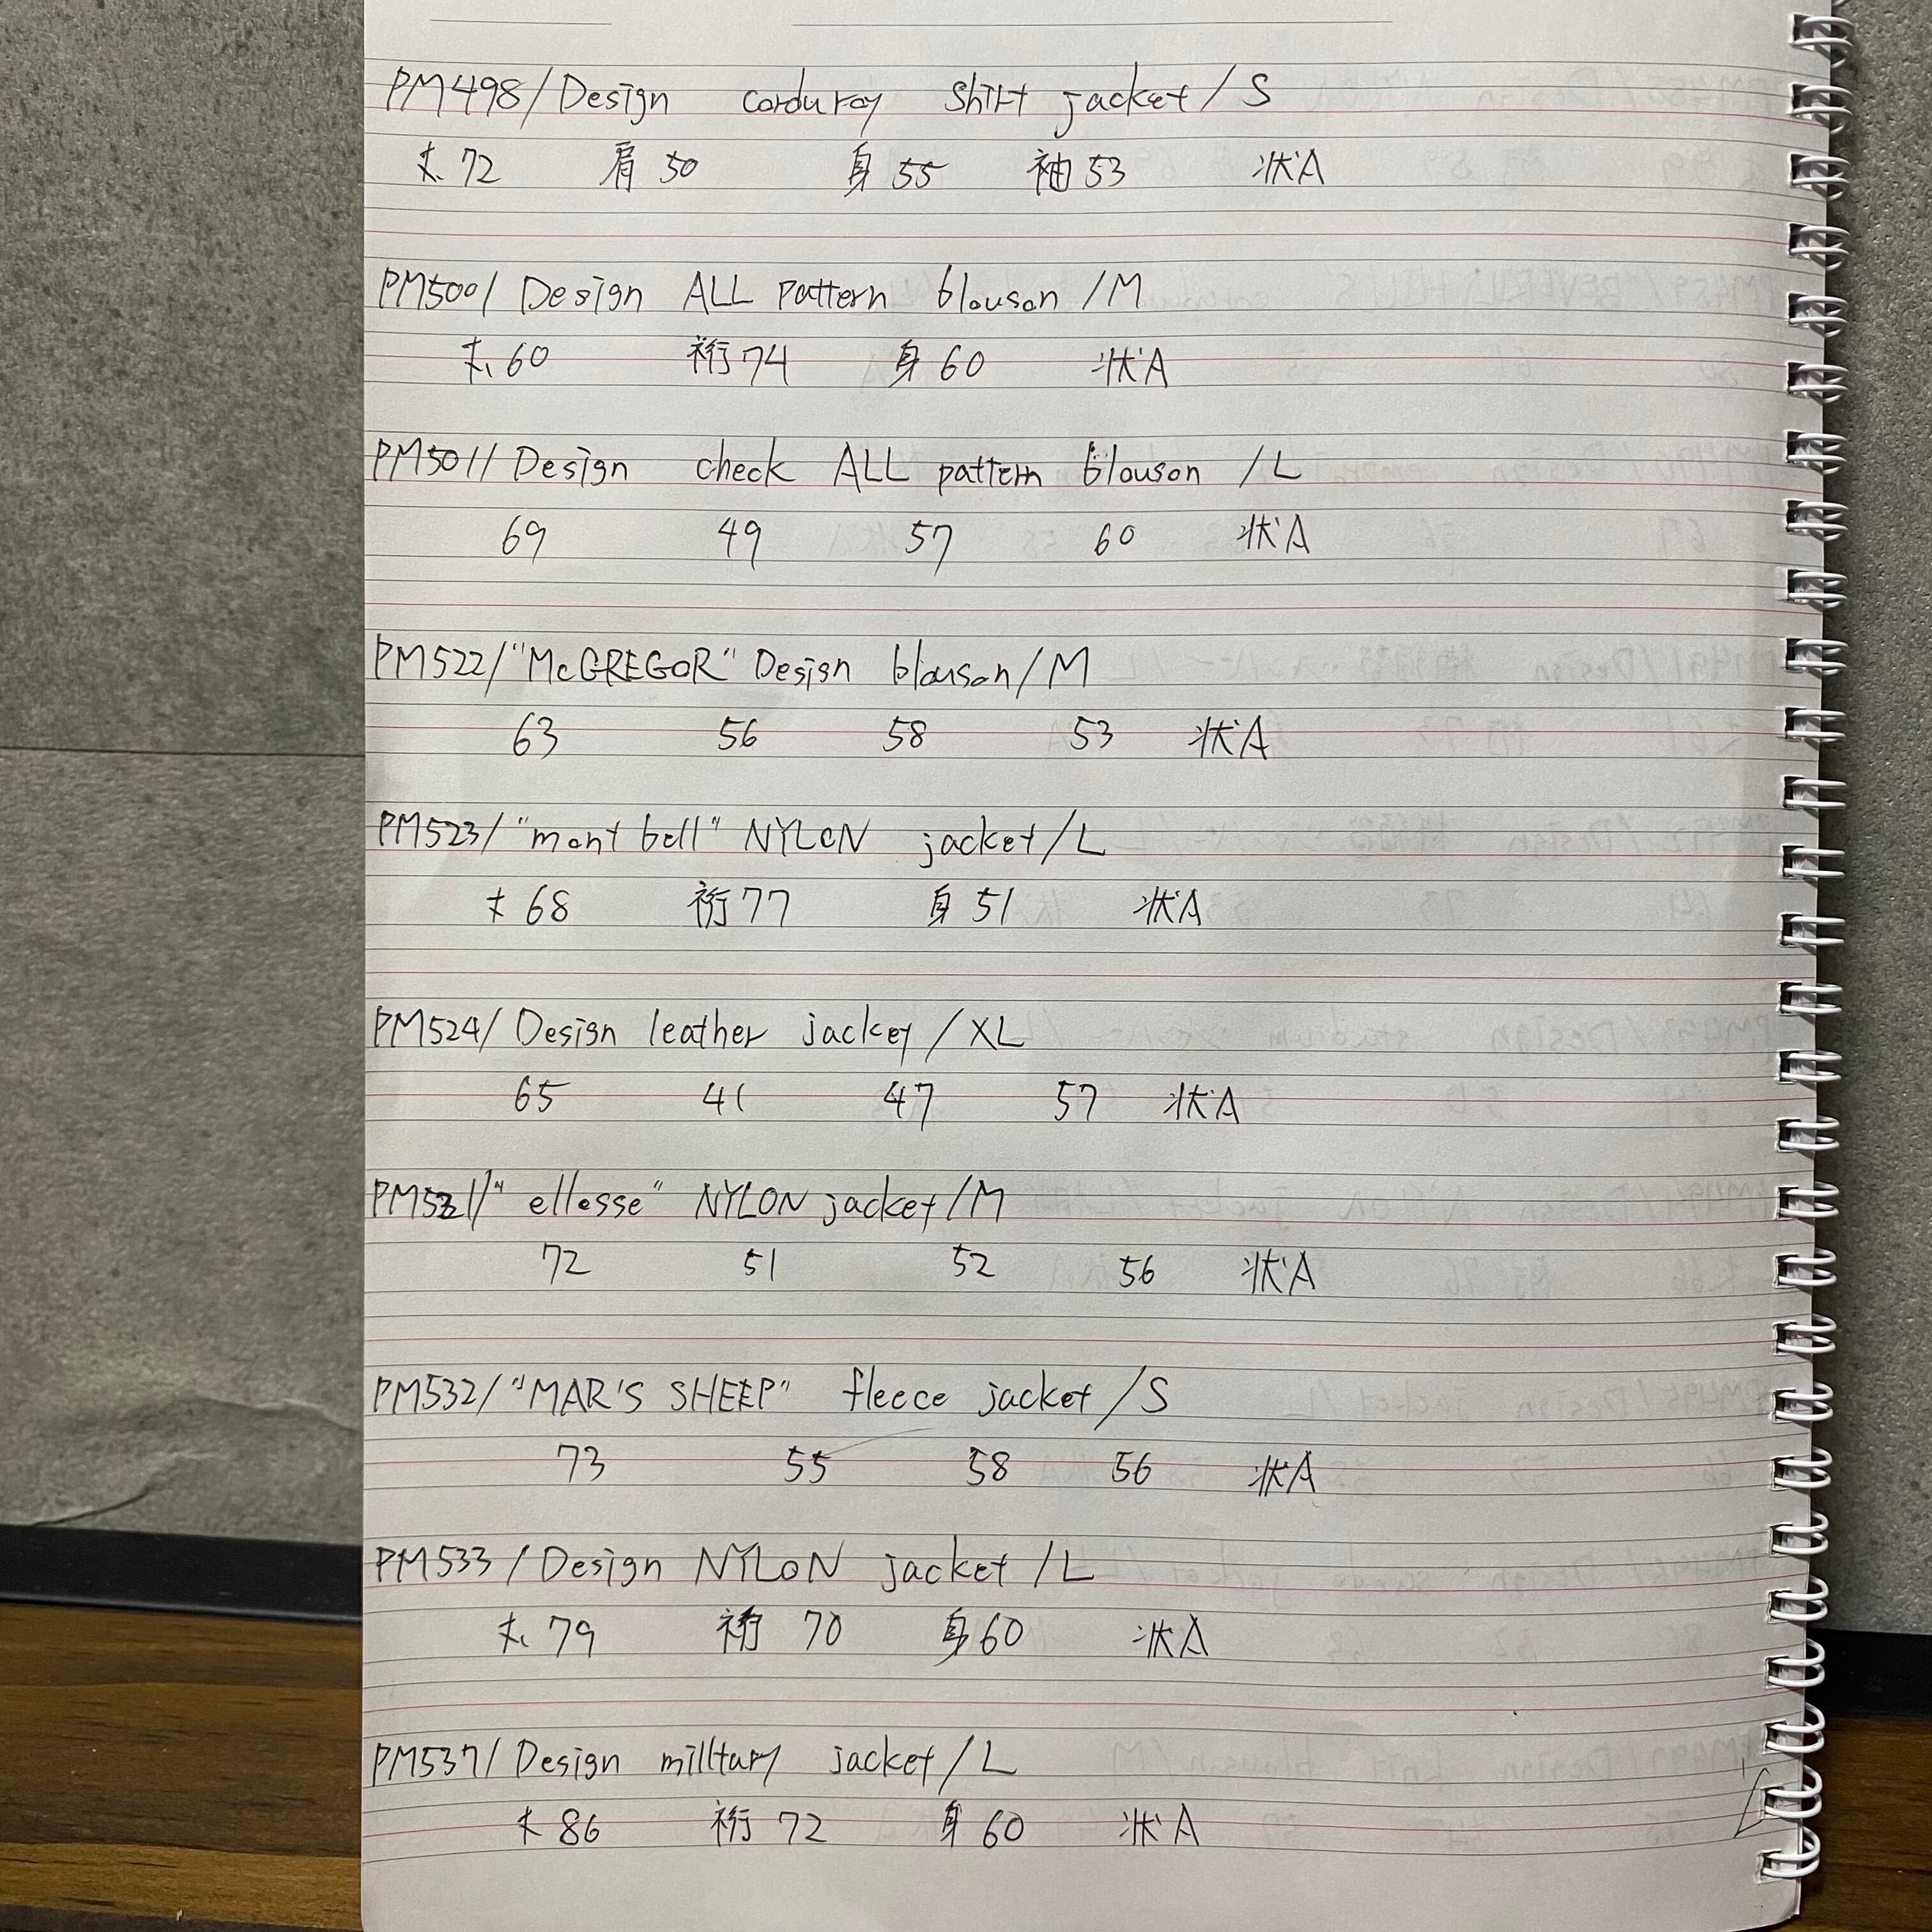 PM498/Design corduroy shirt jacket/S
丈72 肩50 身55 袖53 状A
PM500/Design ALL pattern blouson/M
丈60 裄74 身60 状A
PM501/Design check ALL pattern blouson/L
69 49 57 60 状A
PM522/"McGREGOR" Design blouson/M
63 56 58 53 状A
PM523/"mont bell" NYLON jacket/L
丈68 裄77 身51 状A
PM524/Design leather jacket/XL
65 41 47 57 状A
PM521/"ellesse" NYLON jacket/M
72 51 52 56 状A
PM532/"MAR'S SHEEP" fleece jacket/S
73 55 58 56 状A
PM533/Design NYLON jacket/L
丈79 裄70 身60 状A
PM537/Design milltary jacket/L
丈86 裄72 身60 状A